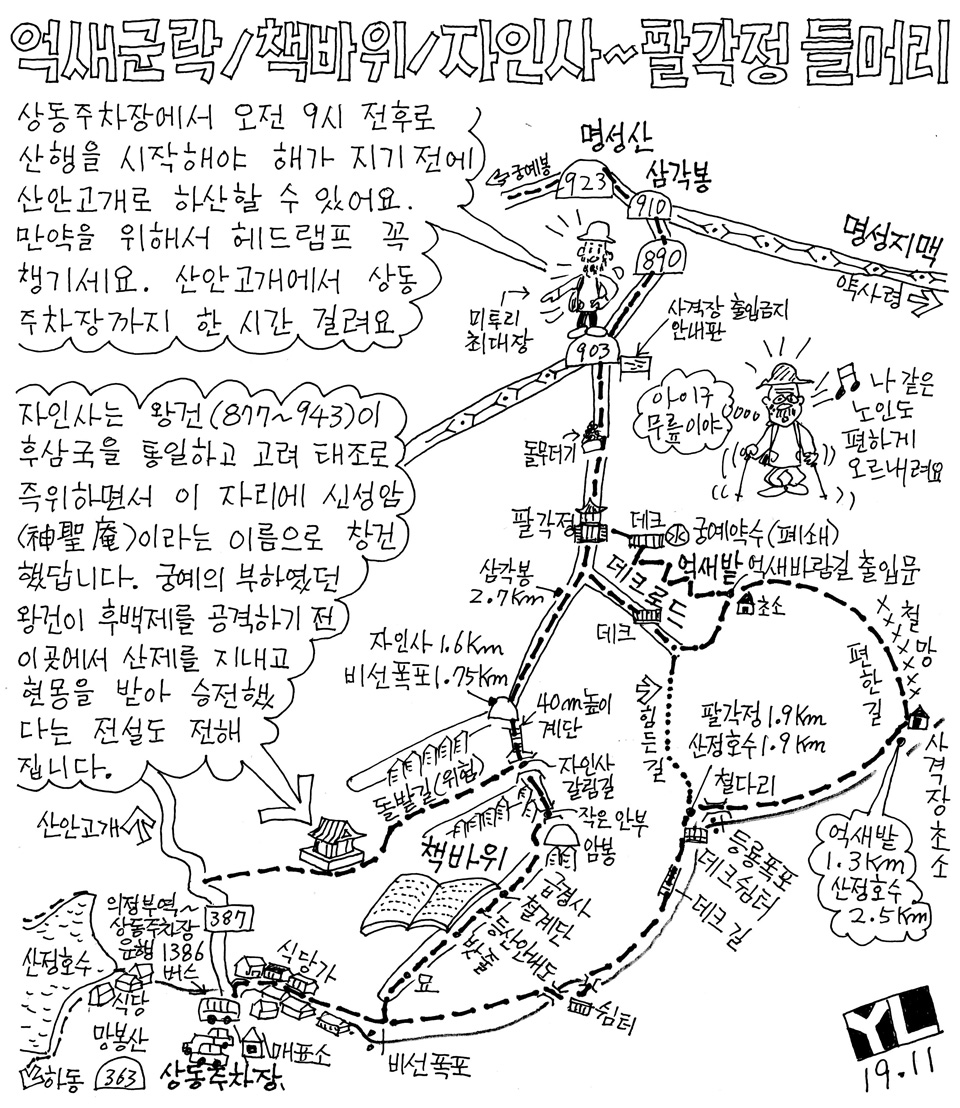 억새군락/책바위/자인사~팔각정 들머리
상동주차장에서 오전 9시 전후로
산행을 시작해야 해가 지기 전에
산안고개로 하산할 수 있어요.
만약을 위해서 헤드램프 꼭
챙기세요. 산안고개에서 상동
주차장까지 한 시간 걸려요
명성산
궁예봉
923
삼각봉
910
890
명성지맥
약사령
미투리
최대장
사격장 출입금지
안내판
903
자인사는 왕건(877~943)이
후삼국을 통일하고 고려 태조로
즉위하면서 이 자리에 신성암
(神聖庵)이라는 이름으로 창건
했답니다. 궁예의 부하였던
왕건이 후백제를 공격하기 전
이곳에서 산제를 지내고
현몽을 받아 승전했
다는 전설도 전해
집니다.
아이구
무릎이야
나 같은
노인도
편하게
오르내려요
돌무더기
팔각정
데크
水
궁예약수(폐쇄)
데크로드
억새밭
억새바람길 출입문
초소
삼각봉
2.7Km
데크
철망
편한길
자인사 1.6Km
비선폭포 1.75Km
40m높이
계단
힘든길
팔각정 1.9Km
산정호수 1.9Km
철다리
사격장초소
돌발길(위험)
자인사
갈림길
작은 안부
암봉
책바위
급경사
철계단
등산안내도
밧줄
등룡폭포
데크쉼터
데크 길
억새밭
1.3Km
산정호수
2.5Km
산안고개
387
의정부역~
상동주차장
운행 1386
버스
산정호수
식당
망봉산
363
하동
상동주차장
식당가
매표소
묘
비선폭포
쉼터
YL
19.11